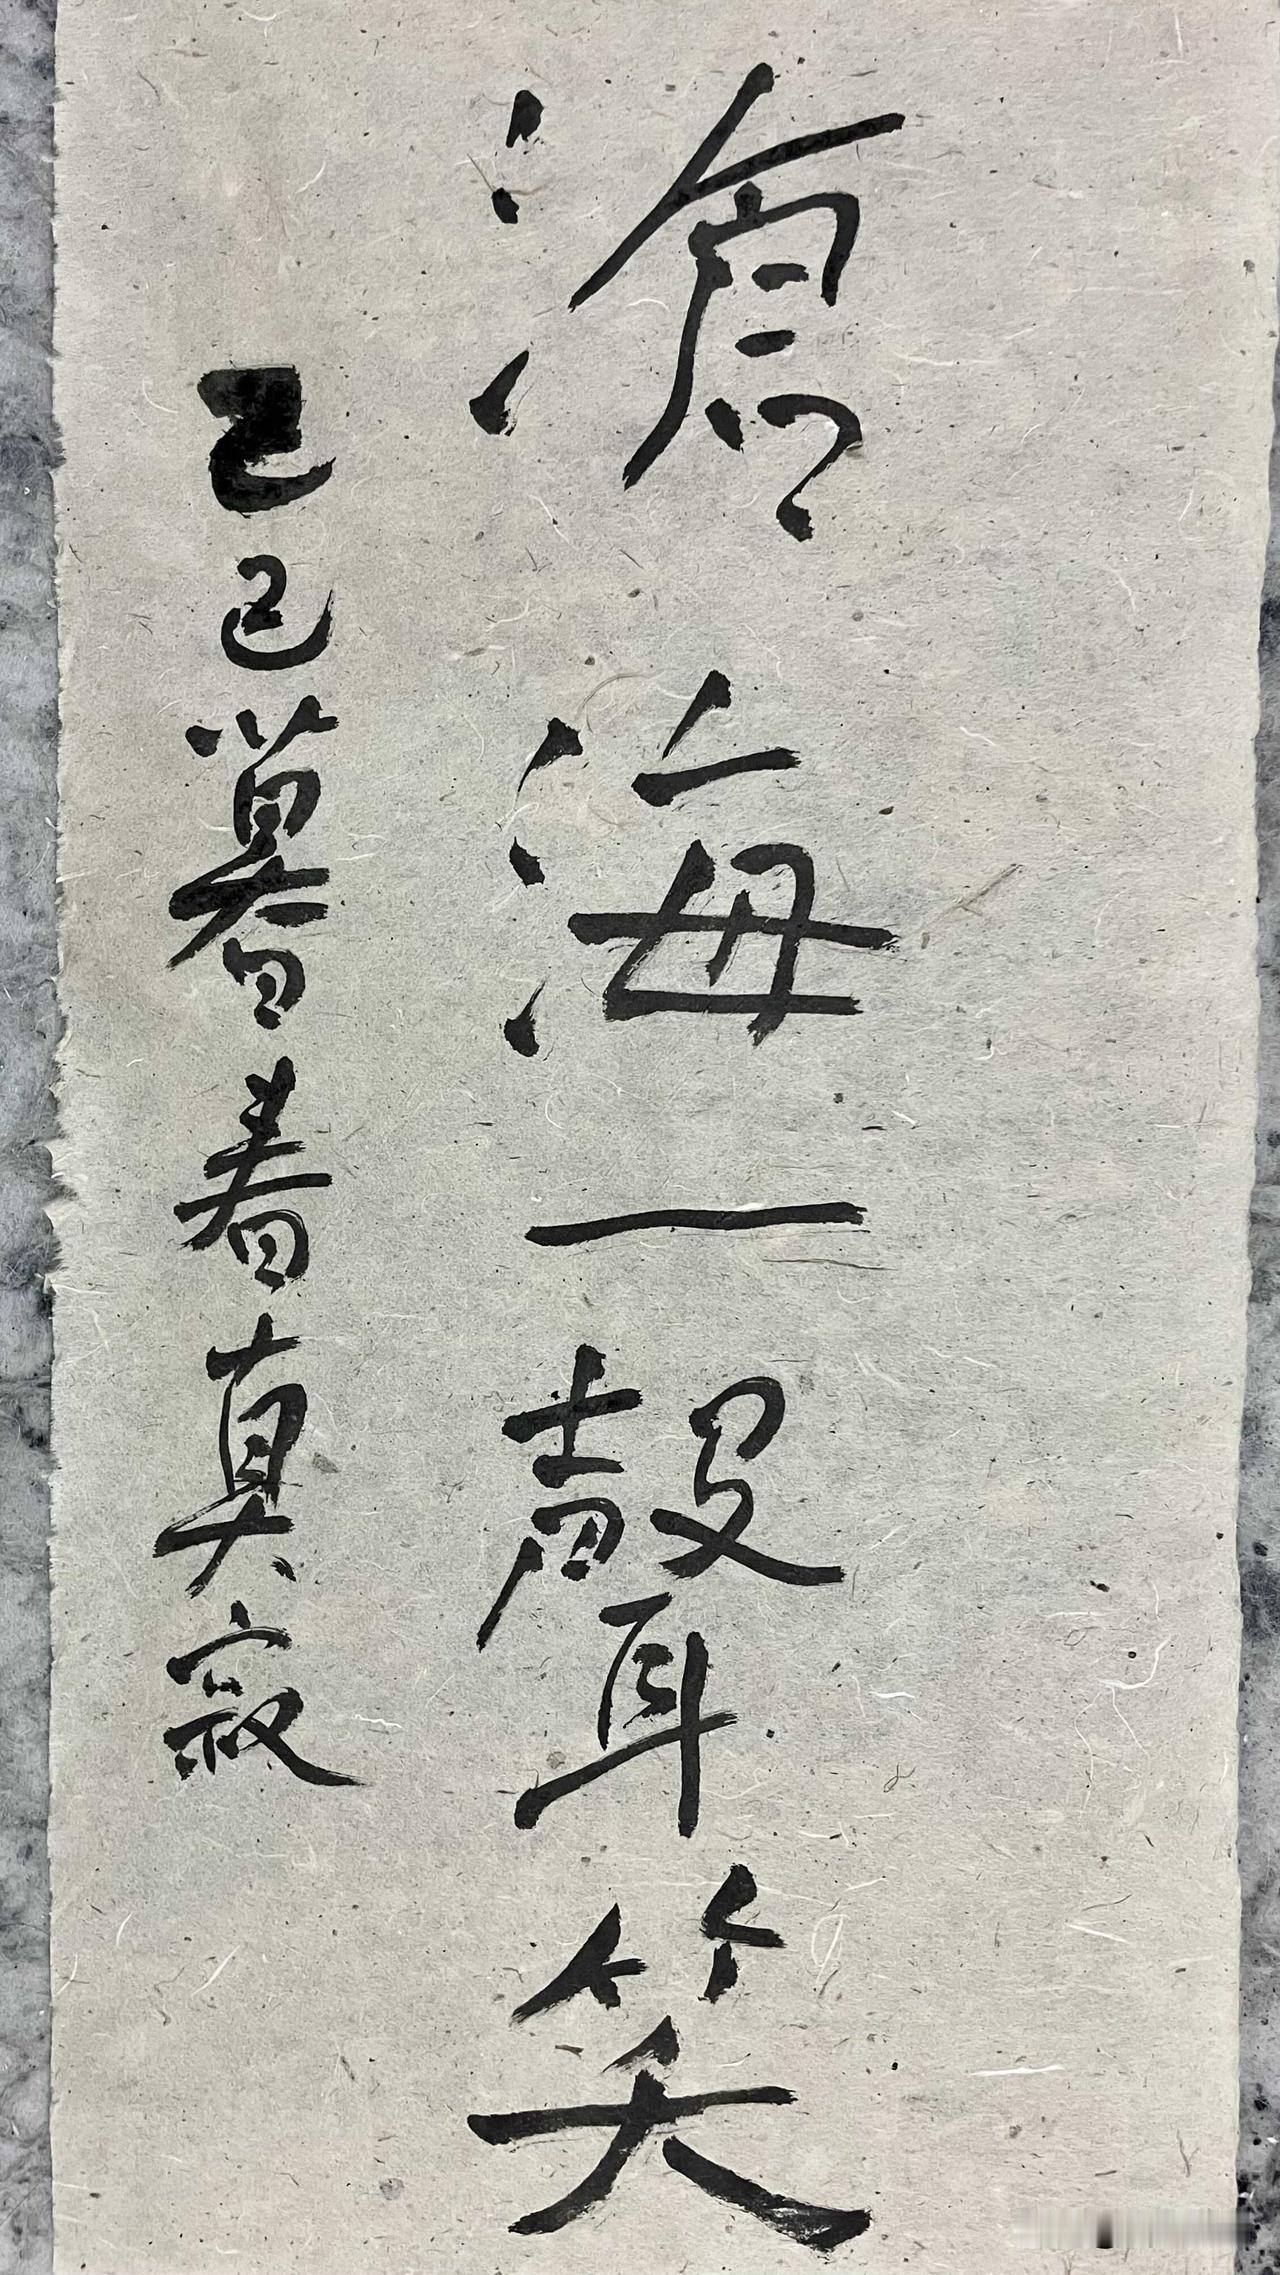 滄海一聲笑
乙巳暮春真寂